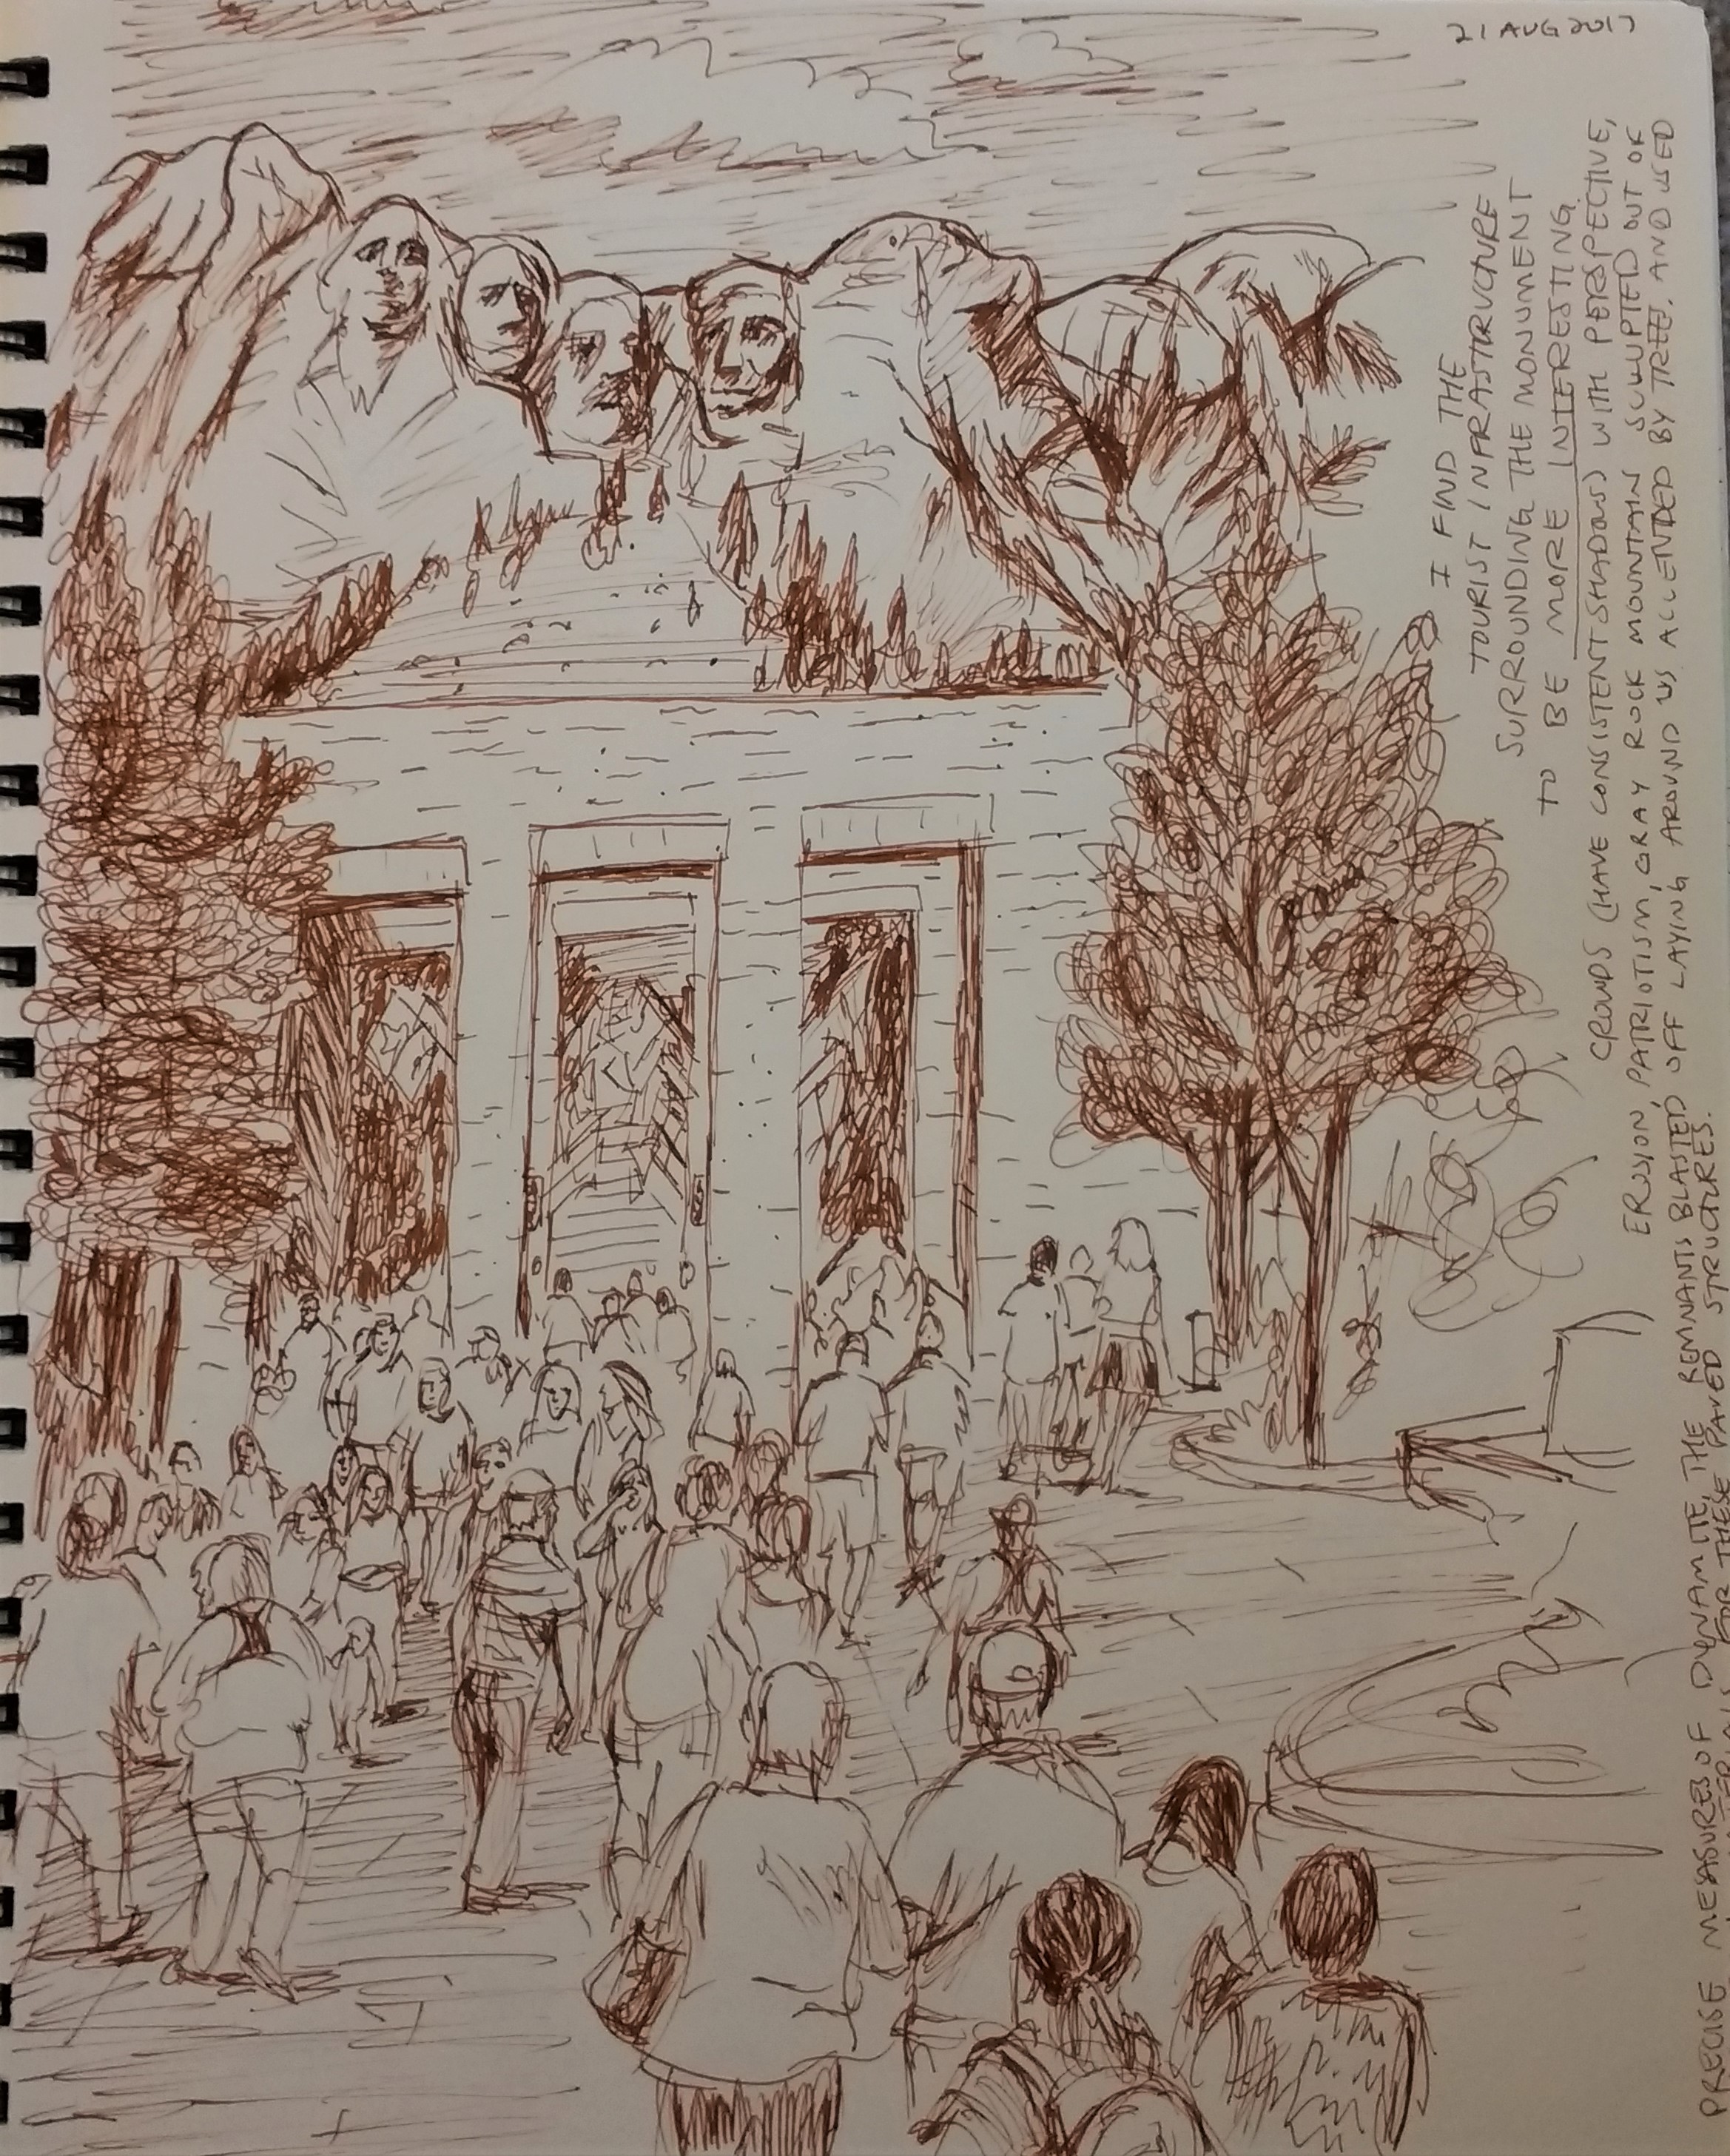 21 AUG 2017
I FIND THE
TOURIST INFRASTRUCTURE
SURROUNDING THE MONUMENT
TO BE MORE INTERESTING.
CROWDS (HAVE CONSISTENT SHADOWS) WITH PERSPECTIVE,
EROSION, PATRIOTISM, GRAY ROCK MOUNTAIN SCULUPTED OUT OF
PRECISE MEASURES OF DYNAMITE, THE REMNANTS BLASTED OFF LAYING AROUND US ACCENTED BY TREE, AND USED
FOR THESE PAVED STRUCTURES.